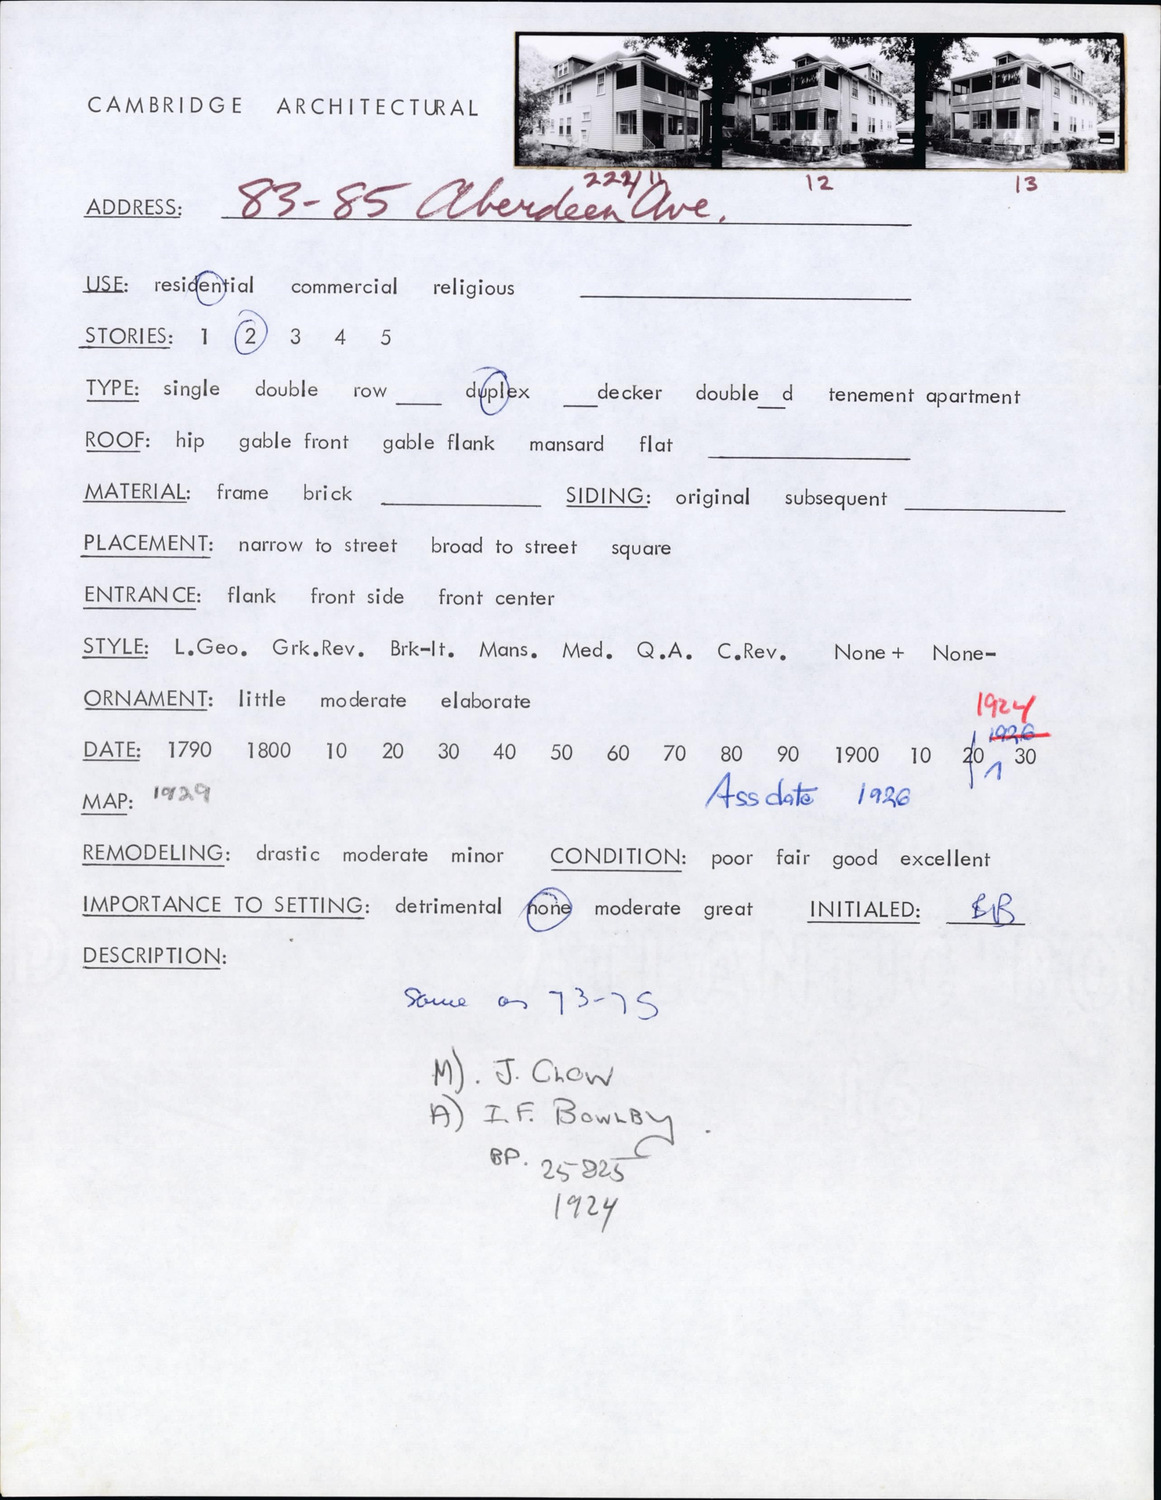 CAMBRIDGE ARCHITECTURAL
222/11 12 13
ADDRESS: 83-85 Aberdeen Ave.
USE: residential commercial religious
STORIES: 1 2 3 4 5
TYPE: single double row ____ duplex ____decker double___d tenement apartment
ROOF: hip gable front gable flank mansard flat
MATERIAL: frame brick SIDING: original subsequent
PLACEMENT: narrow to street broad to street square
ENTRANCE: flank front side front center
STYLE: L.Geo. Grk.Rev. Brk-It. Mans. Med. Q.A. C.Rev. None+ None-
ORNAMENT: little moderate elaborate
1924
1926
DATE: 1790 1800 10 20 30 40 50 60 70 80 90 1900 10 20 30
MAP: 1929 Ass date 1926
REMODELING: drastic moderate minor CONDITION: poor fair good excellent
IMPORTANCE TO SETTING: detrimental none moderate great INITIALED:
DESCRIPTION:
Same as 73-75
M). J. Chow
A) I.F. Bowlby
BP. 25825
1924